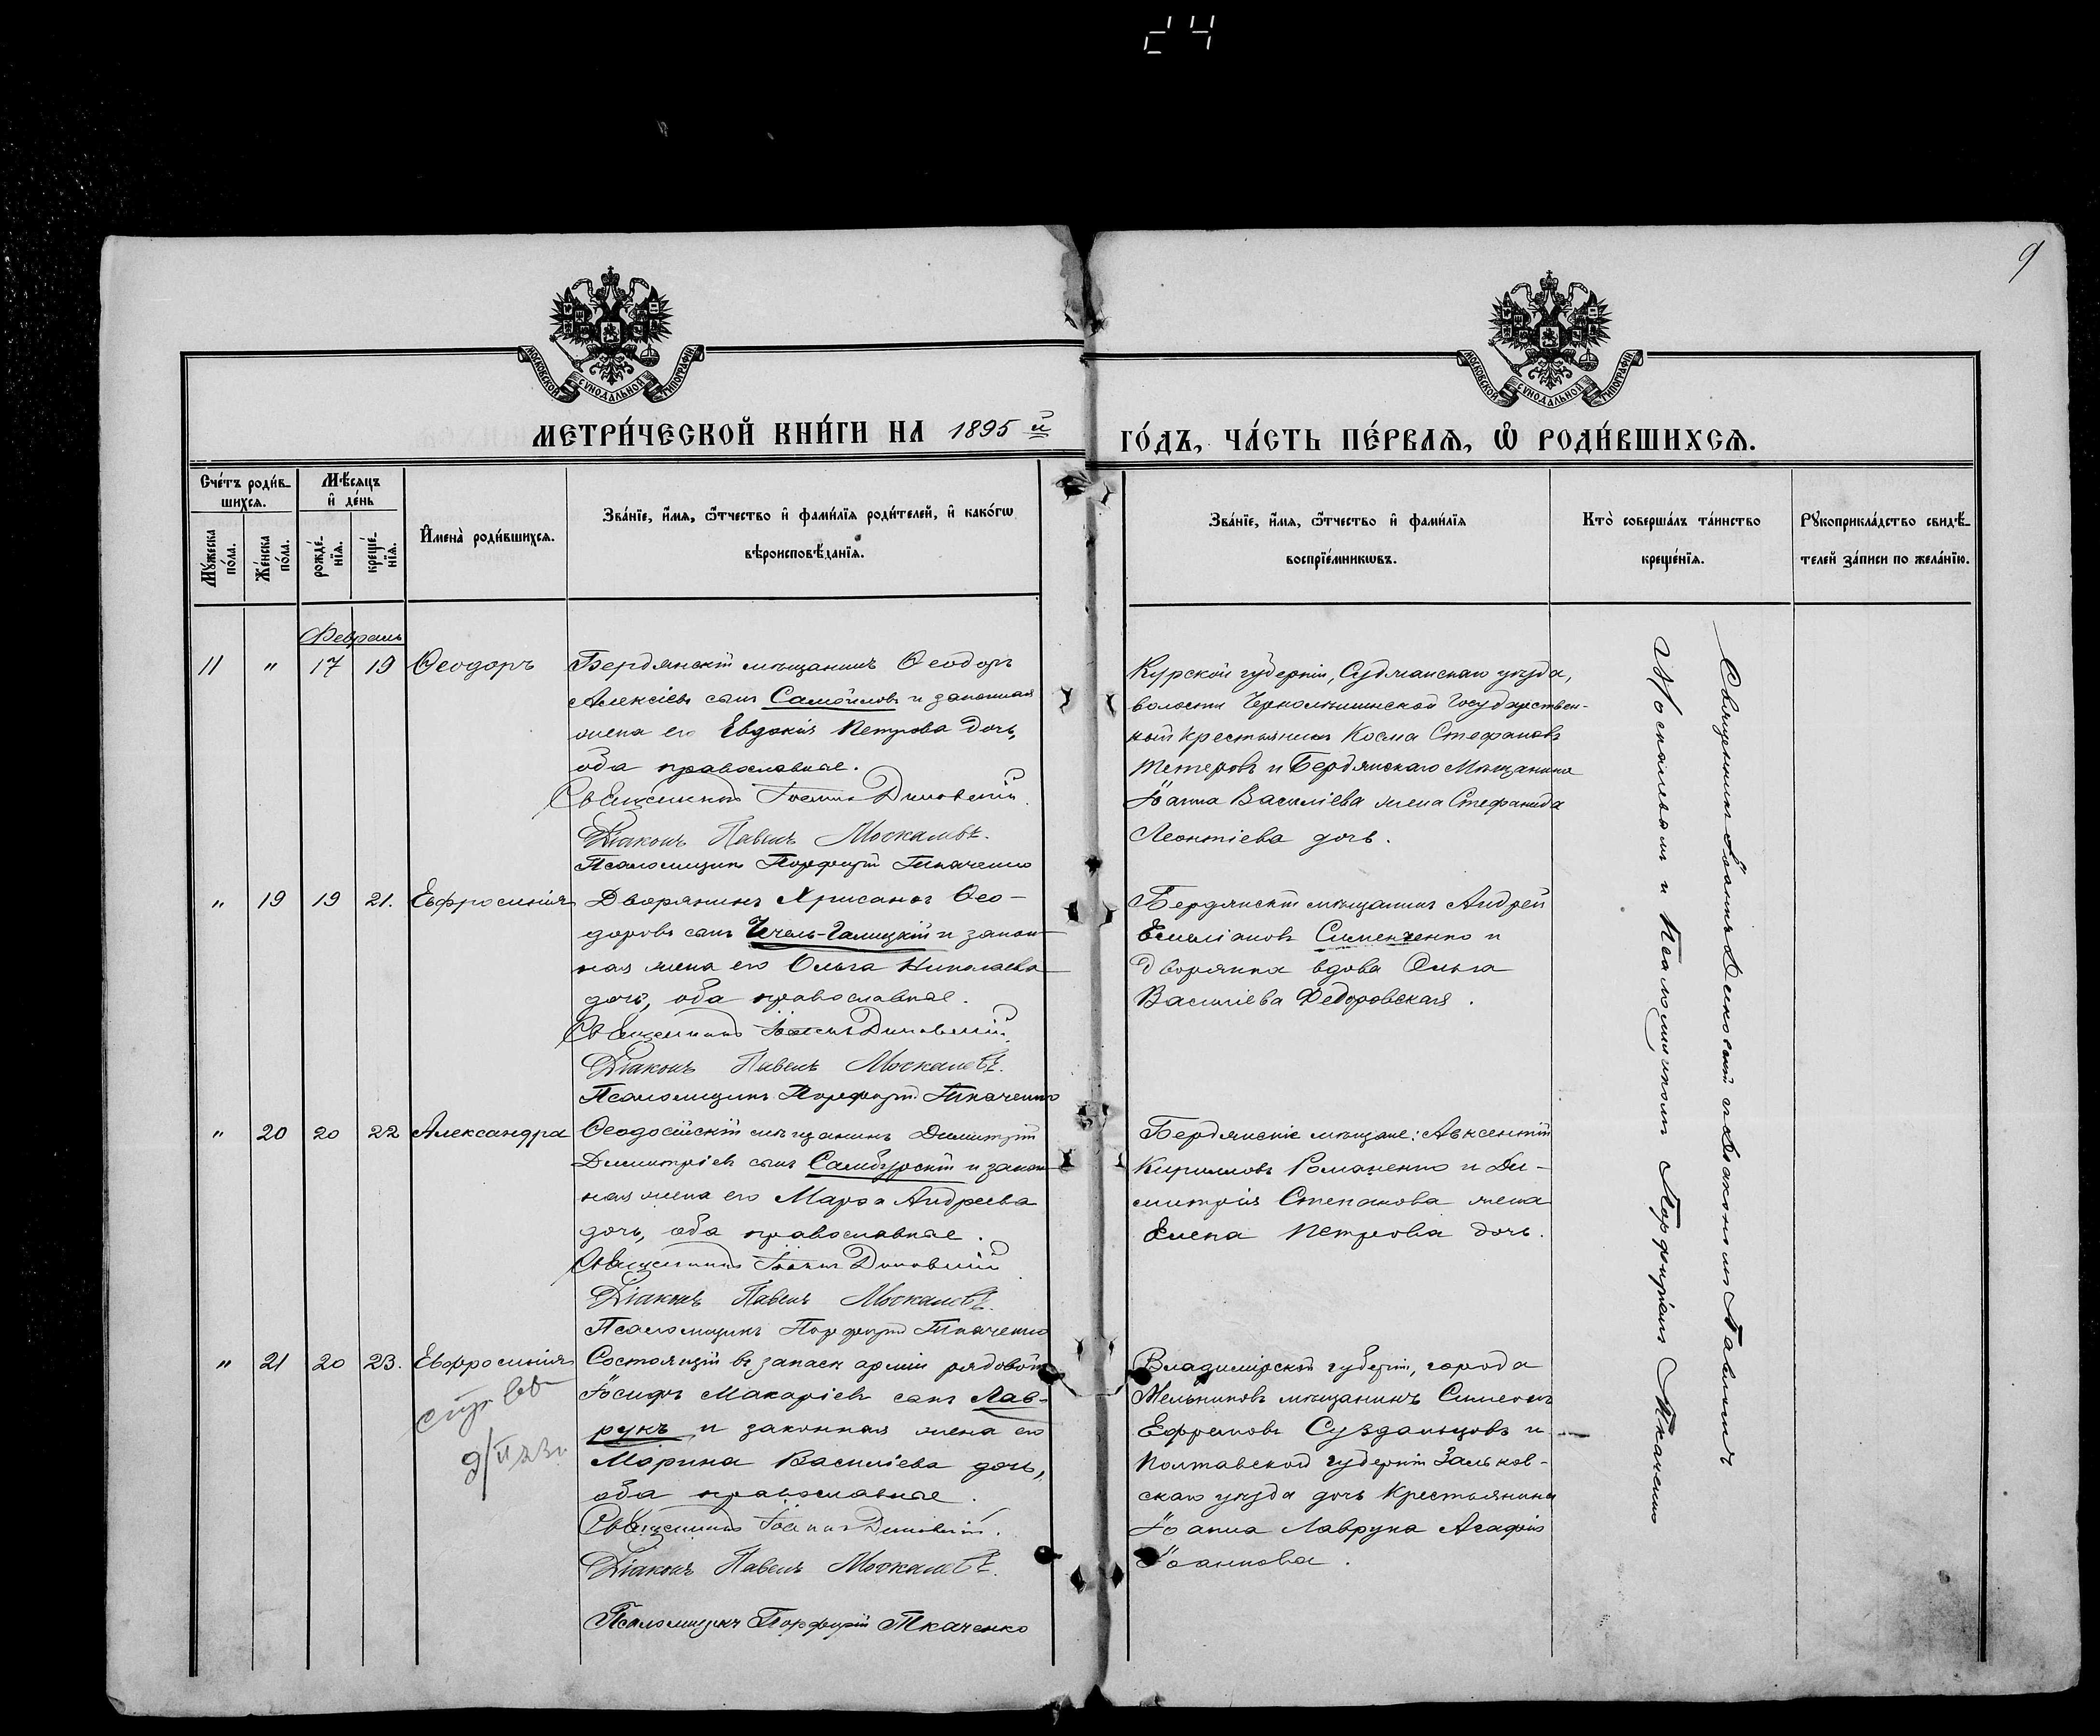 24
9
МОСКОВСКОЙ СУНОДАЛЬНОЙ ТИПОГРАФІИ
МОСКОВСКОЙ СУНОДАЛЬНОЙ ТИПОГРАФІИ
МЕТРИ́ЧЕСКОЙ КНИ́ГИ НА 1895 й
ГО́ДЪ, ЧА́СТЬ ПЕ́РВАѦ, Ѡ҆ РОДИ́ВШИХСѦ.
Сче́тъ роди́в-
шихсѧ.
Мꙋ́жеска по́ла.
Же́нска по́ла.
Мѣ́сѧцъ
и҆ де́нь
рожде́-нїѧ.
креще́-нїѧ.
И҆мена̀ роди́вшихсѧ.
Зва́нїе, и҆́мѧ, ѻ҆́тчество и҆ фами́лїѧ роди́телей, и҆ како́гѡ
вѣроисповѣ́данїѧ.
Зва́нїе, и҆́мѧ, ѻ҆́тчество и҆ фами́лїѧ
воспрїе́мникѡвъ.
Кто̀ соверша́лъ та́инство
креще́нїѧ.
Рꙋкоприкла́дство свидѣ́-
телей за́писи по жела́нїю.
Февраль
11 " 17 19 Ѳеодоръ
Бердянскій мѣщанинъ Ѳеодоръ
Алексіевъ сынъ Самойловъ и законная
жена его Евдокія Петрова дочь,
оба православные.
Священникъ Іоаннъ Диковскій
Діаконъ Павелъ Москалевъ.
Псаломщикъ Порфирій Ткаченко
Курской губерніи, Суджанскаго уѣзда,
волости Государствен-
ный крестьянинъ Косма Стефановъ
Тетеровъ и Бердянскаго Мѣщанина
Іоанна Василіева жена Стефанида
Леонтіева дочь.
" 19 19 21. Евфросинія
Дворянинъ Хрисанѳъ Ѳео-
доровъ сынъ Чечель-Галицкій и закон-
ная жена его Ольга Николаева
дочь, оба православные.
Священникъ Іоаннъ Диковскій.
Діаконъ Павелъ Москалевъ.
Псаломщикъ Порфирій Ткаченко
Бердянскій мѣщанинъ Андрей
Емеліановъ Сименченко и
дворянка вдова Ольга
Василіева Федоровская.
" 20 20 22 Александра
Ѳеодосійскій мѣщанинъ Димитрій
Димитріевъ сынъ Самбурскій и закон-
ная жена его Марѳа Андреева
дочь, оба православные.
Священникъ Іоаннъ Диковскій
Діаконъ Павелъ Москалевъ.
Псаломщикъ Порфирій Ткаченко
Бердянскіе мѣщане: Авксентій
Кирилловъ Романенко и Ди-
митрія Степанова жена
Елена Петрова дочь.
" 21 20 23. Евфросинія
Состоящій въ запасѣ арміи рядовой
Іосифъ Макаріевъ сынъ Лав-
рукъ и законная жена его
Марина Василіева дочь,
оба православные.
Священникъ Іоаннъ Диковскій.
Діаконъ Павелъ Москалевъ.
Псаломщикъ Порфирій Ткаченко
Владимірской губерніи, города
мѣщанинъ Симеонъ
Ефремовъ Суздальцовъ и
Полтавской губерніи
скаго уѣзда дочь Крестьянина
Іоанна Лаврука Агафія
Іоаннова.
Священникъ Іоаннъ Диковскій съ Діакономъ Павломъ
Москалевымъ и Псаломщикомъ Порфиріемъ Ткаченко